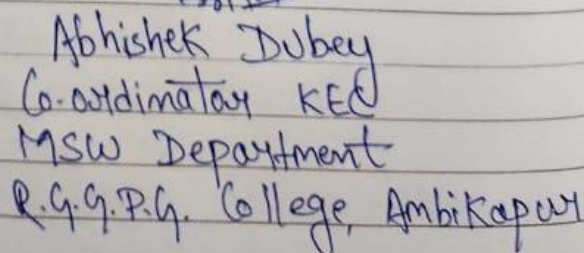 Abhishek Dubey
Co-ordinator KEC
MSW Department
R.G.G.P.G. College, Ambikapur